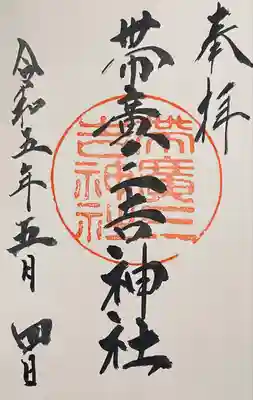 奉拝
帯廣三吉神社
令和五年五月四日
帯廣三
吉神社